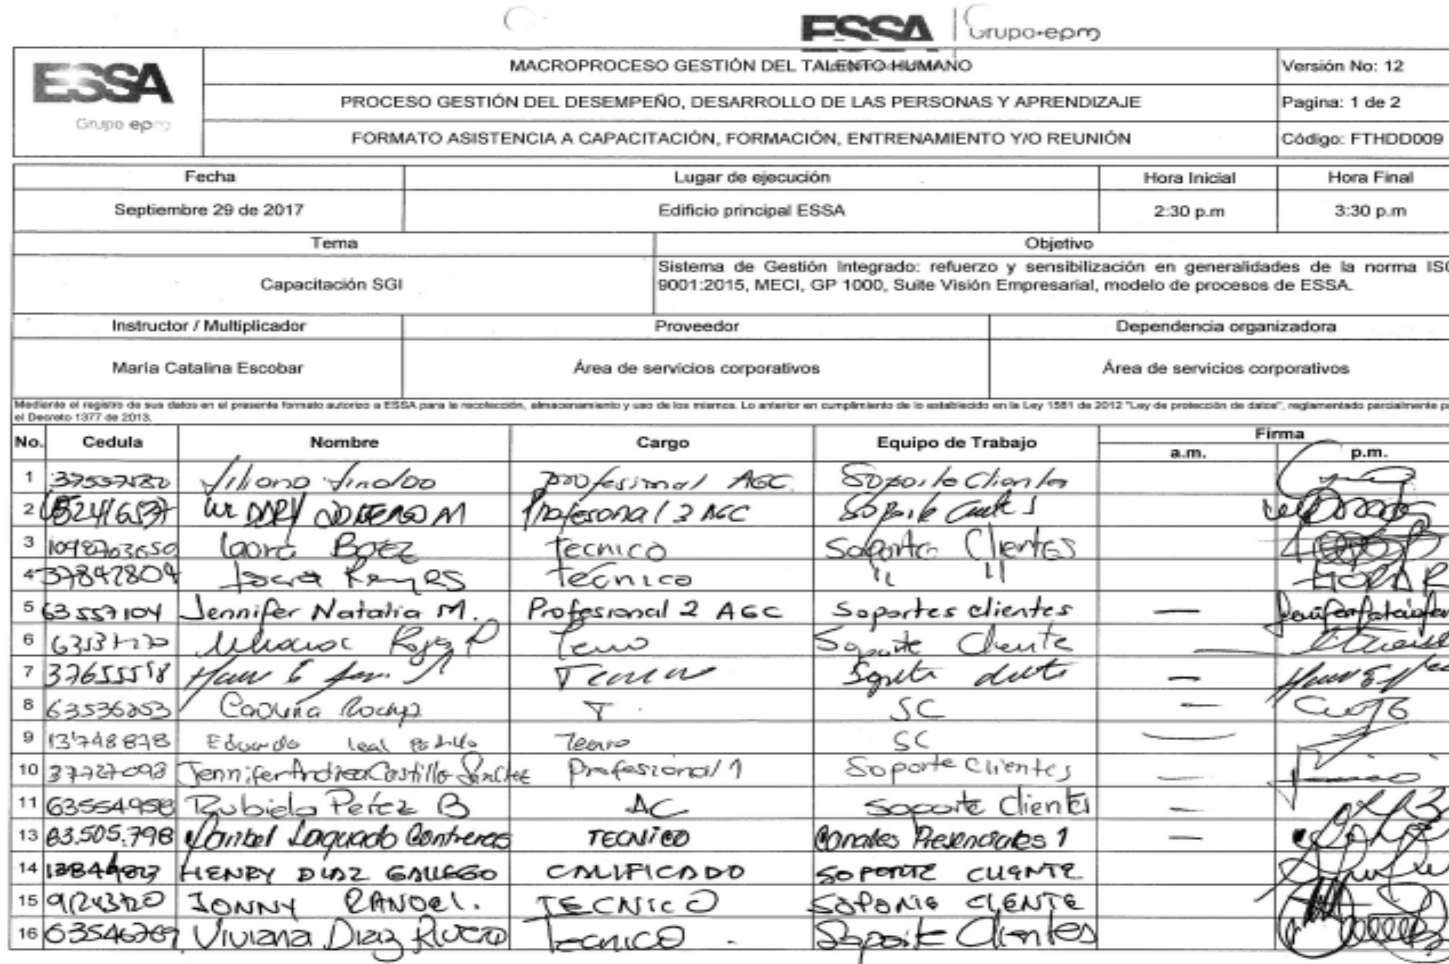 ESSA Grupo·epm
ESSA
Grupo epm
MACROPROCESO GESTIÓN DEL TALENTO HUMANO
Versión No: 12
PROCESO GESTIÓN DEL DESEMPEÑO, DESARROLLO DE LAS PERSONAS Y APRENDIZAJE
Pagina: 1 de 2
FORMATO ASISTENCIA A CAPACITACIÓN, FORMACIÓN, ENTRENAMIENTO Y/O REUNIÓN
Código: FTHDD009
Fecha Lugar de ejecución Hora Inicial Hora Final
Septiembre 29 de 2017 Edificio principal ESSA 2:30 p.m 3:30 p.m
Tema Objetivo
Capacitación SGI
Sistema de Gestión Integrado: refuerzo y sensibilización en generalidades de la norma ISO
9001:2015, MECI, GP 1000, Suite Visión Empresarial, modelo de procesos de ESSA.
Instructor / Multiplicador Proveedor Dependencia organizadora
María Catalina Escobar Área de servicios corporativos Área de servicios corporativos
Mediante el registro de sus datos en el presente formato autorizo a ESSA para la recolección, almacenamiento y uso de los mismos. Lo anterior en cumplimiento de lo establecido en la Ley 1581 de 2012 "Ley de protección de datos", reglamentado parcialmente p
el Decreto 1377 de 2013.
No. Cedula Nombre Cargo Equipo de Trabajo Firma
a.m. p.m.
1 profesional AGC Soporte Clientes
2 Profesional 3 AGC Soporte
3 1098703650 Laura Baez Tecnico Soporte Clientes
4 37842804 Reyes Tecnico " "
5 63557104 Jennifer Natalia M. Profesional 2 AGC Soportes clientes —
6 Rojas P Soporte Cliente —
7 37655518 Tecnico —
8 63536253 Rocha T. SC —
9 13748878 Eduardo Leal SC —
10 37727093 Jennifer Andrea Castillo Profesional 1 Soporte Clientes —
11 63554958 Rubiela Perez B AC Soporte Clientes —
13 63.505.798 Maribel Laguado Contreras TECNICO Canales Presenciales 1 —
14 HENRY DIAZ GALLEGO CALIFICADO SOPORTE CLIENTE
15 91243720 JONNY RANGEL. TECNICO SOPORTE CLIENTE
16 63546769 Viviana Diaz Rivero Tecnico . Soporte Clientes